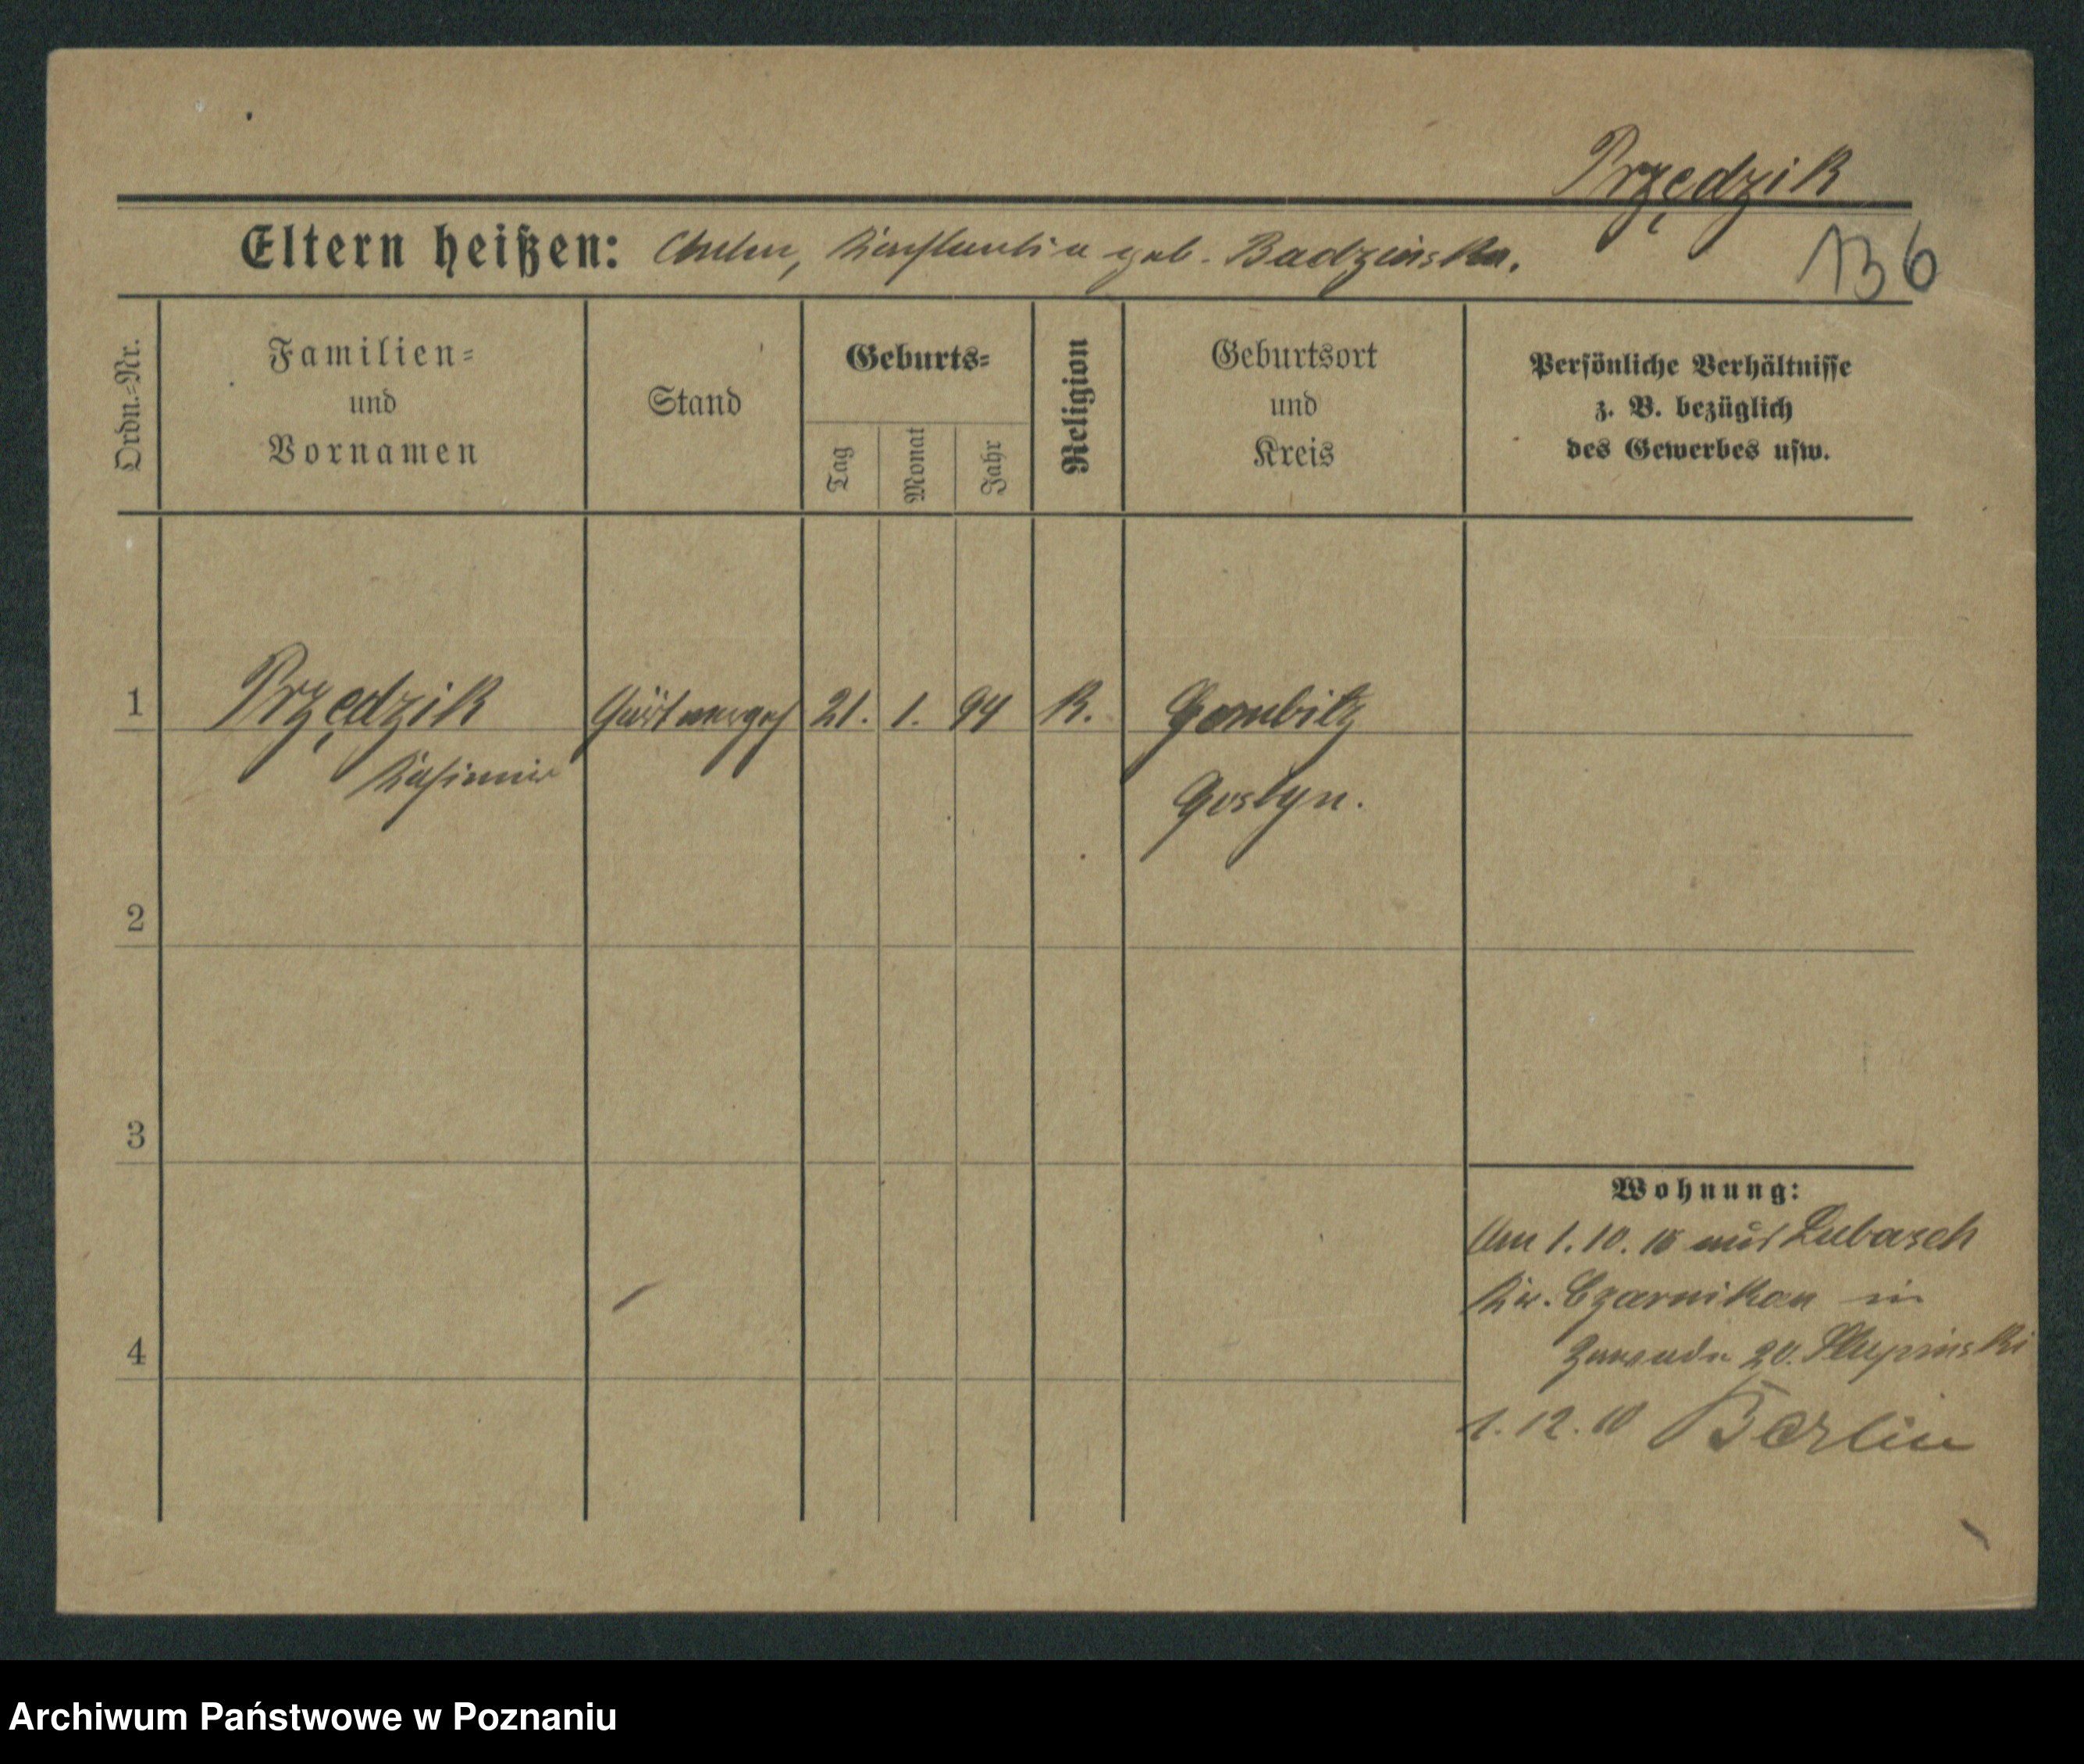 Przędzik
136
Eltern heißen: geb. Badzinska.
Ordn.-Nr.
Familien-
und
Vornamen
Stand
Geburts-
Tag
Monat
Jahr
Religion
Geburtsort
und
Kreis
Persönliche Verhältnisse
z. B. bezüglich
des Gewerbes usw.
1 Przędzik Gärtnergeh 21. 1. 94 K. Gembitz
Kasimir Gostyn.
2
3
4
Wohnung:
Am 1.10. aus Lubasch
Kr. Czarnikau in
20.
1.12.10 Berlin
Archiwum Państwowe w Poznaniu